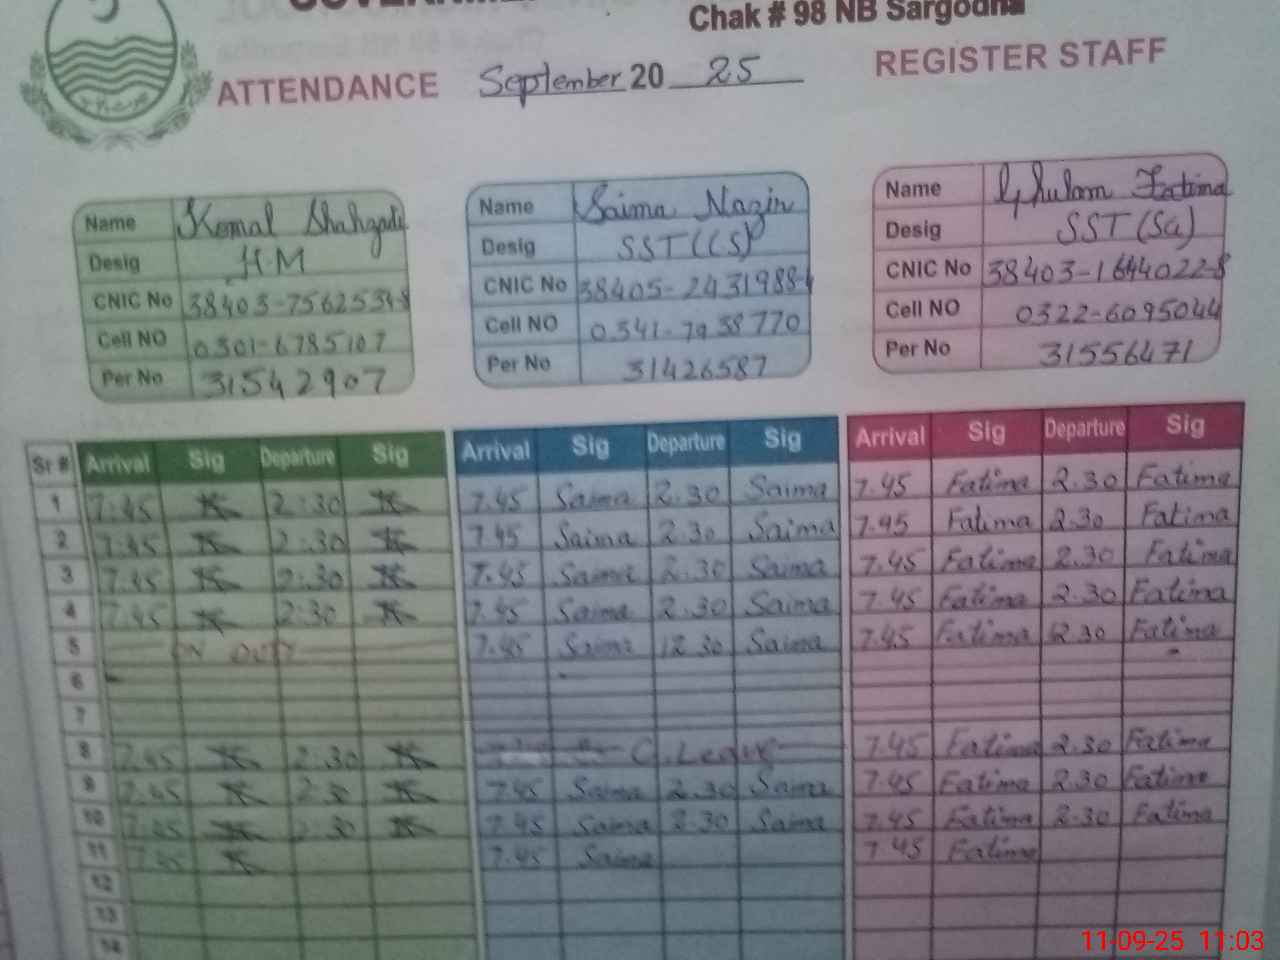 Chak # 98 NB Sargodha
ATTENDANCE September 20 25 REGISTER STAFF
Name Komal Shahzadi
Desig H.M
CNIC No 38403-7562534-8
Cell NO 0301-6785107
Per No 31542907
Name Saima Nazir
Desig SST(CS)
CNIC No 38405-2431988-4
Cell NO 0341-7938770
Per No 31426587
Name Ghulam Fatima
Desig SST(Sc)
CNIC No 38403-1644022-8
Cell NO 0322-6095044
Per No 31556471
Sr # Arrival Sig Departure Sig Arrival Sig Departure Sig Arrival Sig Departure Sig
1 7:45 2:30 7.45 Saima 2.30 Saima 7.45 Fatima 2.30 Fatima
2 7:45 2:30 7.45 Saima 2.30 Saima 7.45 Fatima 2.30 Fatima
3 7.45 2:30 7.45 Saima 2.30 Saima 7.45 Fatima 2.30 Fatima
4 7.45 2:30 7.45 Saima 2.30 Saima 7.45 Fatima 2.30 Fatima
5 ON DUTY 7.45 Saima 12.30 Saima 7.45 Fatima 12.30 Fatima
6
7
8 7.45 2:30 C.Leave 7.45 Fatima 2.30 Fatima
9 7.45 2:30 7.45 Saima 2.30 Saima 7.45 Fatima 2.30 Fatima
10 7.45 2:30 7.45 Saima 2.30 Saima 7.45 Fatima 2.30 Fatima
11 7.45 7.45 Saima 7.45 Fatima
12
13
14
11-09-25 11:03